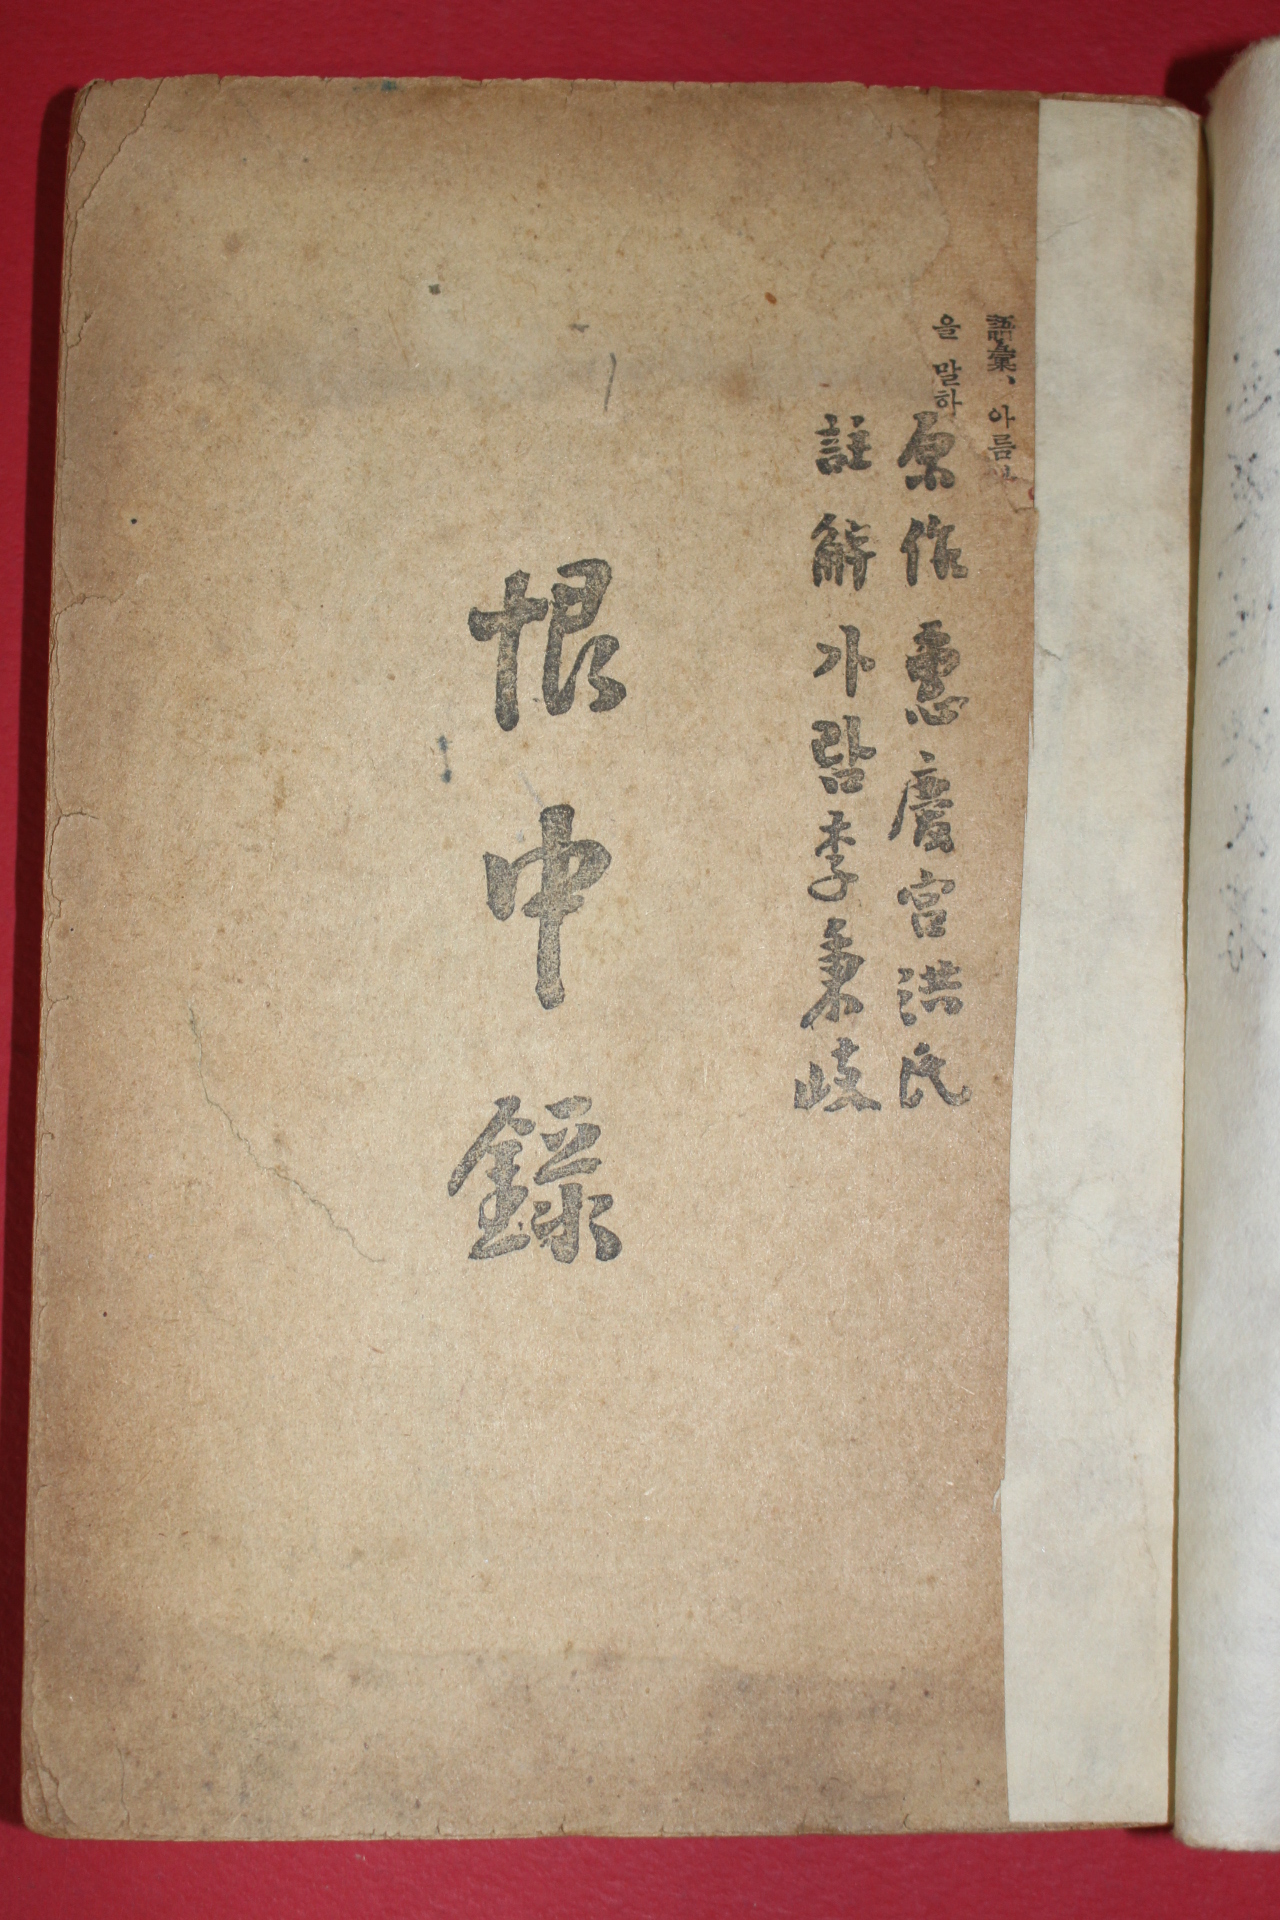 語彙、아름
을 말하
原作 惠慶宮洪氏
註解 가람李秉岐
恨中錄